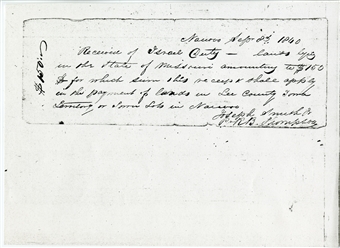 Nauvoo Sept 8th 1840
Received of Israel — lands lying
in the State of Missouri amounting to $150
& for which sum this receipt shall apply
in the payment of lands in Lee County Iowa
Territory, or Town Lots in Nauvoo
Joseph Smith Jr
R B Thompson